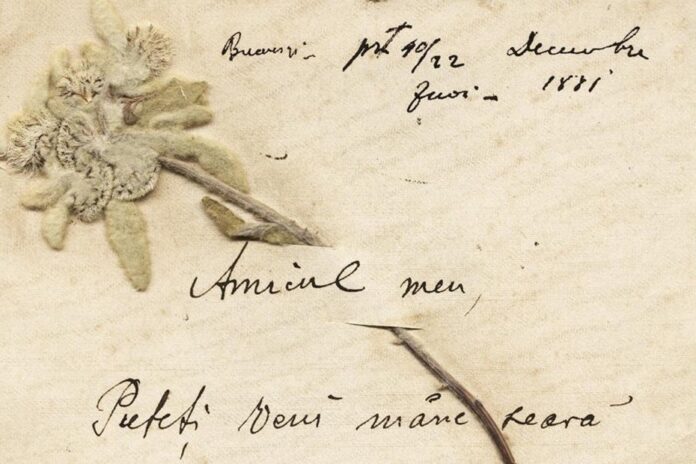 Bucuresci - 10/22 Decembre
1881
Amicul meu,
Puteți veni mâne seară